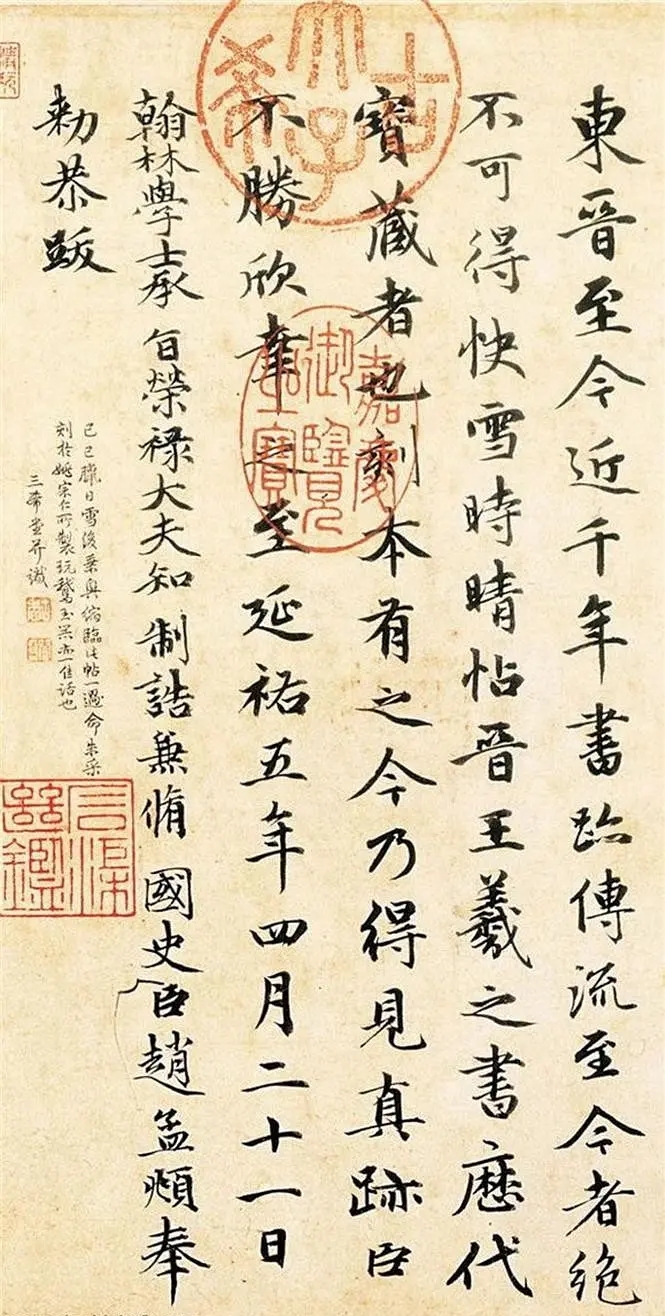 東晉至今近千年書跡傳流至今者絕
不可得快雪時晴帖晉王羲之書歷代
寶藏者也刻本有之今乃得見真跡臣
不勝欣幸之至延祐五年四月二十一日
翰林學士承旨榮祿大夫知制誥兼脩國史臣趙孟頫奉
勑恭跋
己巳臘日雪後乘興縮臨此帖一過命朱采
刻於姚宗仁所製玩鵞玉器亦一佳話也
三希堂并識
古希天子
嘉慶御覽之寶
石渠繼鑑